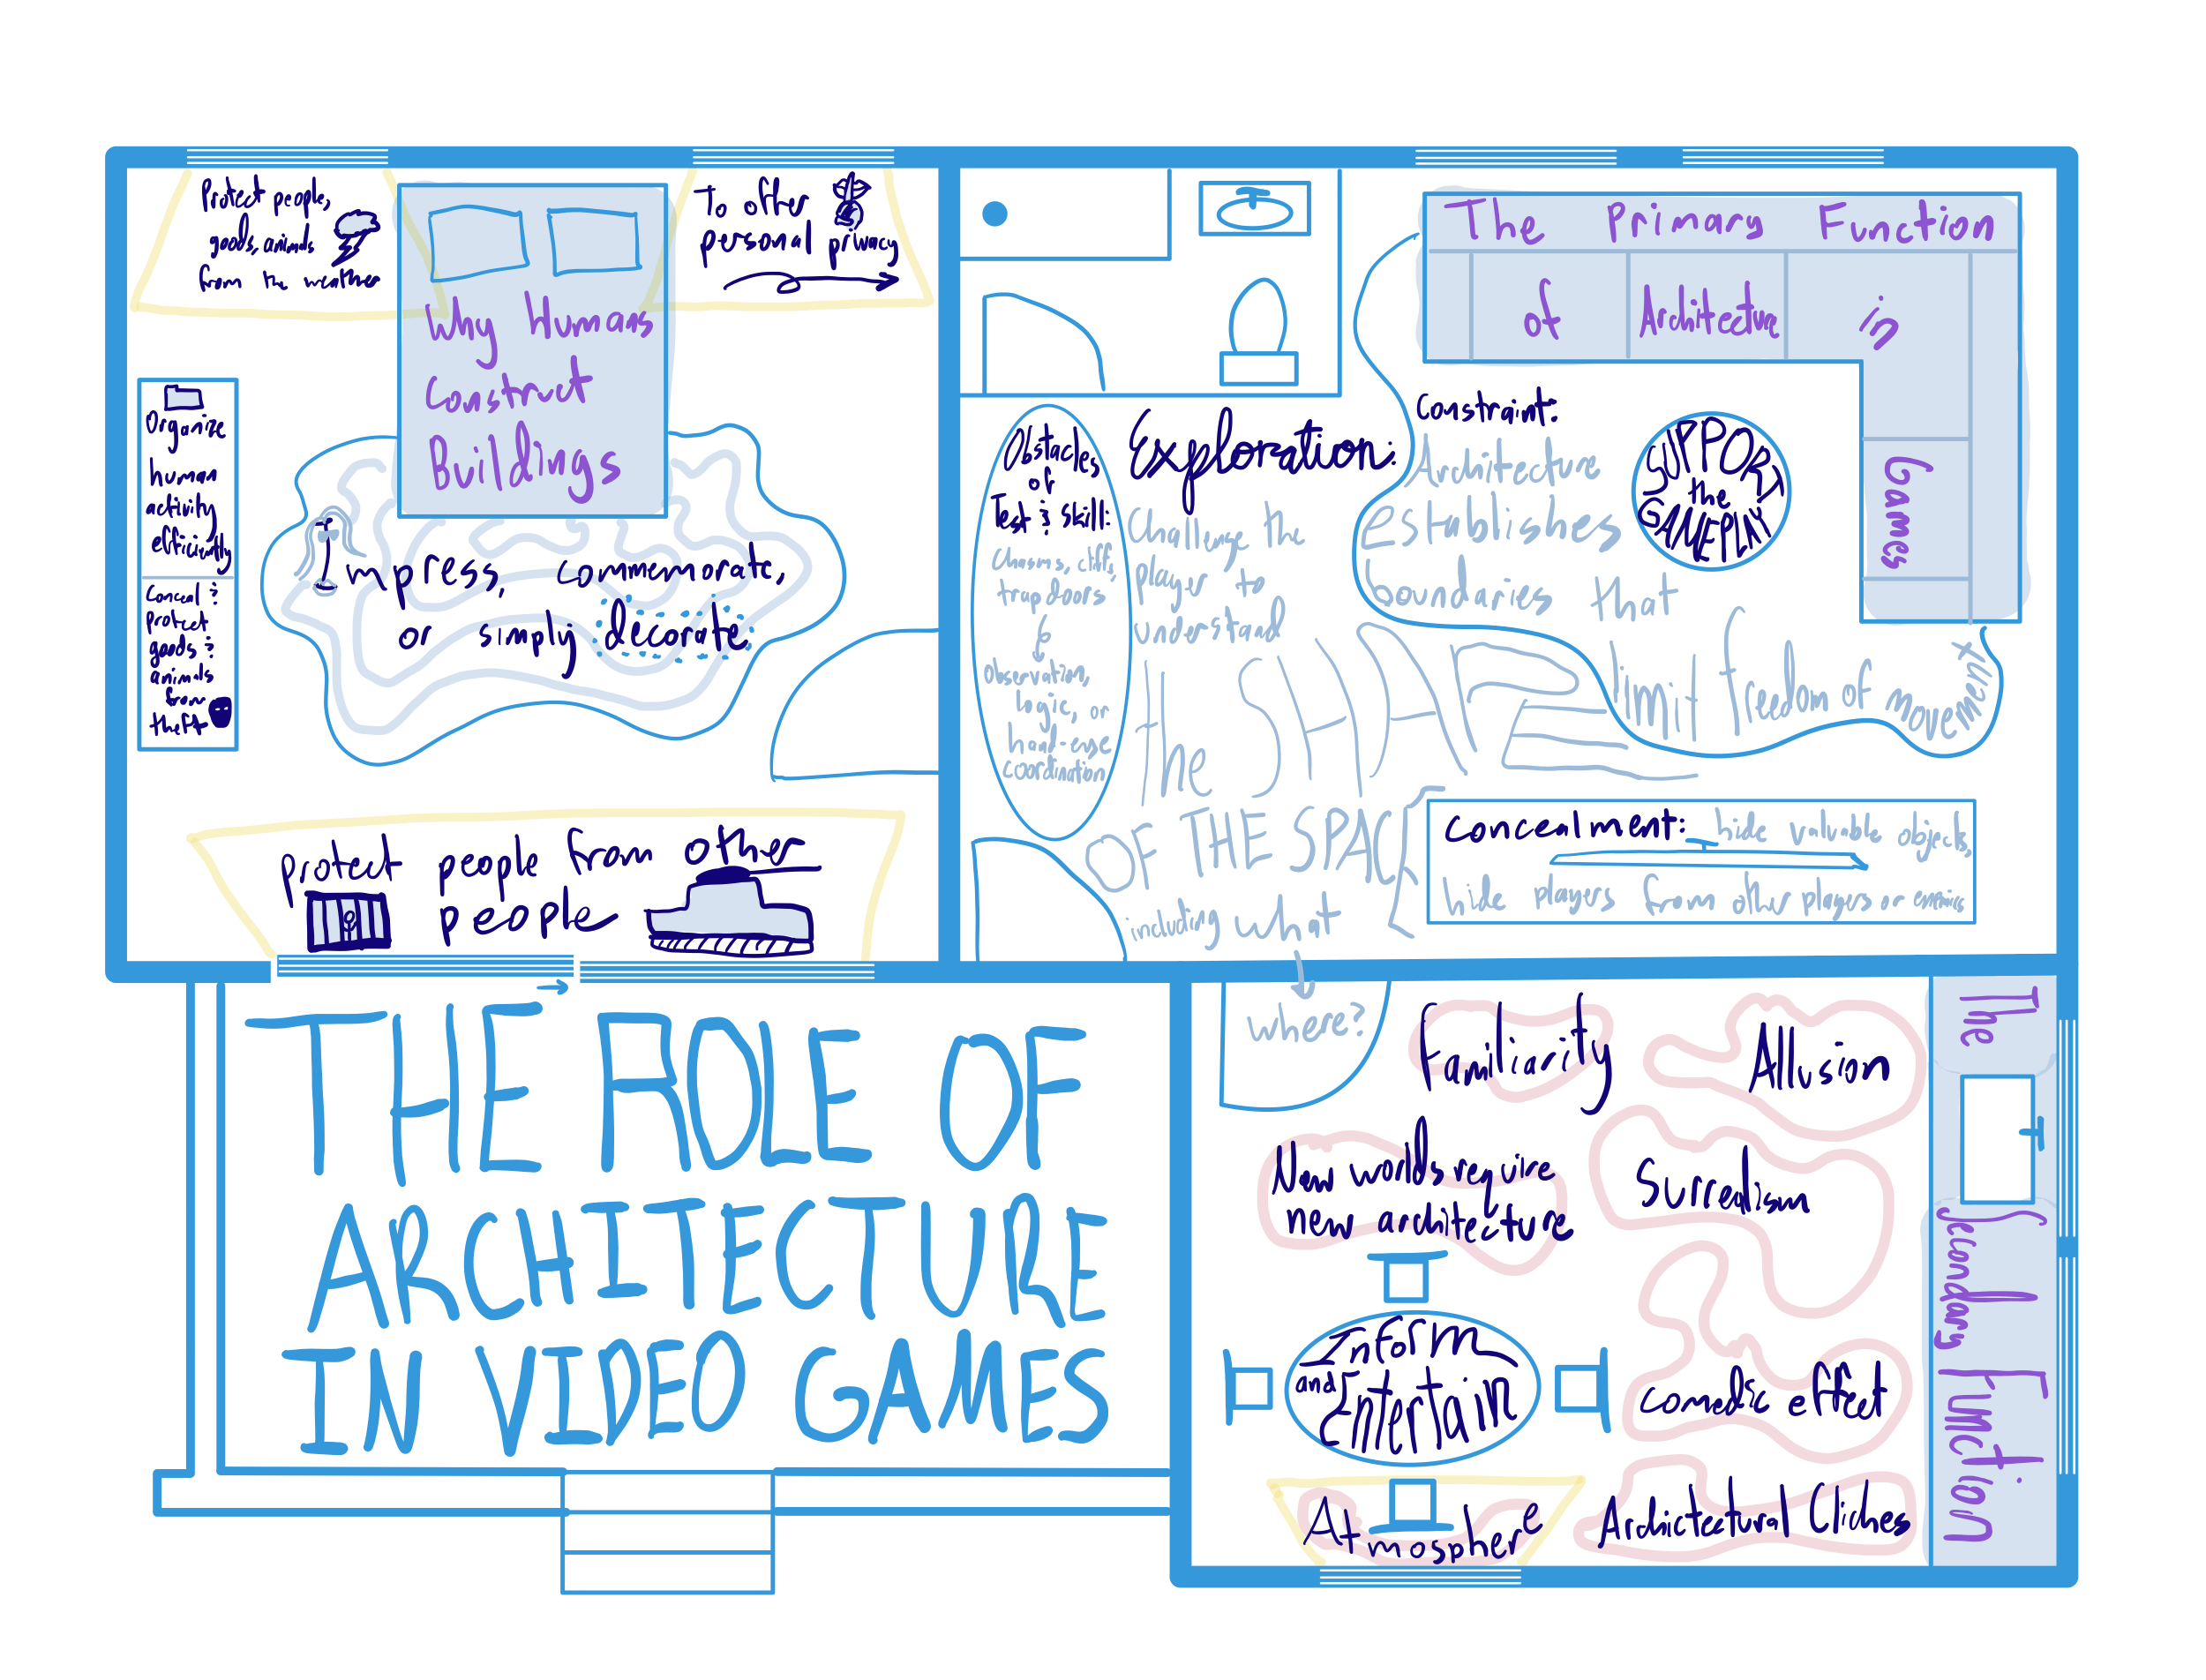 Protect people,
goods, animals
from the weather
Why Humans
Construct
Buildings
To offer
personal privacy
Organize
human
activity
efficiently
Conceal &
protect
goods &
animals
from
theft
Impress, commemorate,
or simply decorate
protect people from other
people
THE ROLE OF
ARCHITECTURE
IN VIDEO GAMES
The Primary Function
of Architecture in
Games
SUPPORT
the
GAMEPLAY
Constraint:
Architecture
establishes
boundaries that
limit freedom of movement
Concealment: hide valuable objects,
hide players from other players or enemies
Obstacles
of
Test & Skill:
Chasms, cliffs,
trapdoors
Observation,
logic, or
hand-eye
coordination
Exploration:
Challenge the
player to
understand
the SHAPE
OF THE SPACE
including what
where?
The Secondary Function
Inform
and Entertain
Familiarity
Allusion
New worlds require
new architecture
Surrealism
comedic effect
Atmosphere
Architectural Cliches